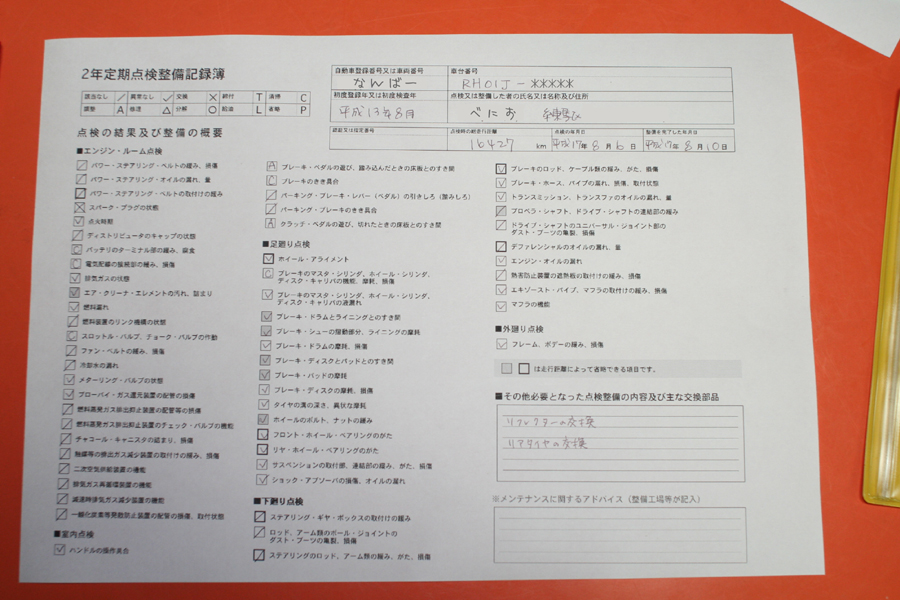 2年定期点検整備記録簿
該当なし ／ 異常なし ✓ 交換 × 締付 T 清掃 C
調整 A 修理 △ 分解 ○ 給油 L 省略 P
自動車登録番号又は車両番号
なんばー
車台番号
RH01J-*****
初度登録年又は初度検査年
平成13年8月
点検又は整備した者の氏名又は名称及び住所
べにお
認証又は指定番号
点検時の総走行距離
16427 km
点検の年月日
平成17年8月6日
整備を完了した年月日
平成17年8月10日
点検の結果及び整備の概要
■エンジン・ルーム点検
パワー・ステアリング・ベルトの緩み、損傷
パワー・ステアリング・オイルの漏れ、量
パワー・ステアリング・ベルトの取付けの緩み
スパーク・プラグの状態
点火時期
ディストリビュータのキャップの状態
バッテリのターミナル部の緩み、腐食
電気配線の接続部の緩み、損傷
排気ガスの状態
エア・クリーナ・エレメントの汚れ、詰まり
燃料漏れ
燃料装置のリンク機構の状態
スロットル・バルブ、チョーク・バルブの作動
ファン・ベルトの緩み、損傷
冷却水の漏れ
メターリング・バルブの状態
ブローバイ・ガス還元装置の配管の損傷
燃料蒸発ガス排出抑止装置の配管等の損傷
燃料蒸発ガス排出抑止装置のチェック・バルブの機能
チャコール・キャニスタの詰まり、損傷
触媒等の排出ガス減少装置の取付けの緩み、損傷
二次空気供給装置の機能
排気ガス再循環装置の機能
減速時排気ガス減少装置の機能
一酸化炭素等発散防止装置の配管の損傷、取付状態
■室内点検
ハンドルの操作具合
A ブレーキ・ペダルの遊び、踏み込んだときの床板とのすき間
C ブレーキのきき具合
パーキング・ブレーキ・レバー（ペダル）の引きしろ（踏みしろ）
パーキング・ブレーキのきき具合
A クラッチ・ペダルの遊び、切れたときの床板とのすき間
■足廻り点検
ホイール・アライメント
C ブレーキのマスタ・シリンダ、ホイール・シリンダ、
ディスク・キャリパの機能、摩耗、損傷
ブレーキのマスタ・シリンダ、ホイール・シリンダ、
ディスク・キャリパの液漏れ
ブレーキ・ドラムとライニングとのすき間
ブレーキ・シューの摺動部分、ライニングの摩耗
ブレーキ・ドラムの摩耗、損傷
ブレーキ・ディスクとパッドとのすき間
ブレーキ・パッドの摩耗
ブレーキ・ディスクの摩耗、損傷
タイヤの溝の深さ、異状な摩耗
ホイールのボルト、ナットの緩み
フロント・ホイール・ベアリングのがた
リヤ・ホイール・ベアリングのがた
サスペンションの取付部、連結部の緩み、がた、損傷
ショック・アブソーバの損傷、オイルの漏れ
■下廻り点検
ステアリング・ギヤ・ボックスの取付けの緩み
ロッド、アーム類のボール・ジョイントの
ダスト・ブーツの亀裂、損傷
ステアリングのロッド、アーム類の緩み、がた、損傷
ブレーキのロッド、ケーブル類の緩み、がた、損傷
ブレーキ・ホース、パイプの漏れ、損傷、取付状態
トランスミッション、トランスファのオイルの漏れ、量
プロペラ・シャフト、ドライブ・シャフトの連結部の緩み
ドライブ・シャフトのユニバーサル・ジョイント部の
ダスト・ブーツの亀裂、損傷
デファレンシャルのオイルの漏れ、量
エンジン・オイルの漏れ
熱害防止装置の遮熱板の取付けの緩み、損傷
エキゾースト・パイプ、マフラの取付けの緩み、損傷
マフラの機能
■外廻り点検
フレーム、ボデーの緩み、損傷
は走行距離によって省略できる項目です。
■その他必要となった点検整備の内容及び主な交換部品
リフレクターの交換
リアタイヤの交換
※メンテナンスに関するアドバイス（整備工場等が記入）